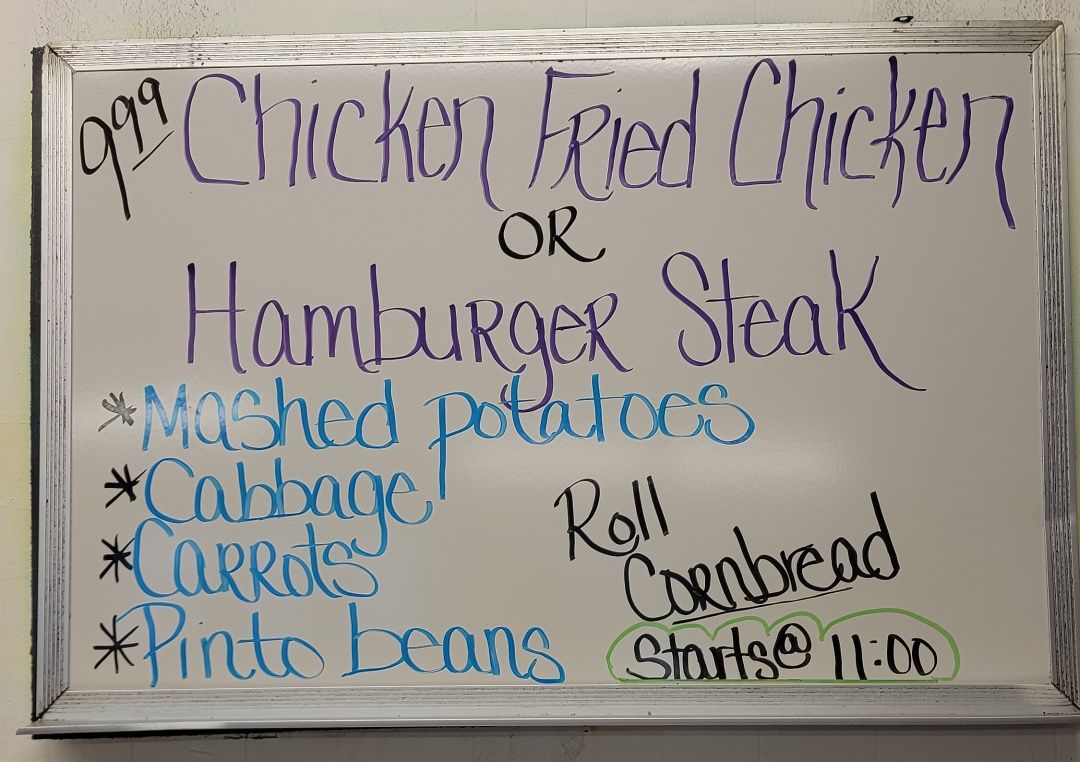 9.99 Chicken Fried Chicken
OR
Hamburger Steak
* Mashed potatoes
* Cabbage
* Carrots
* Pinto beans
Roll
Cornbread
Starts @ 11:00